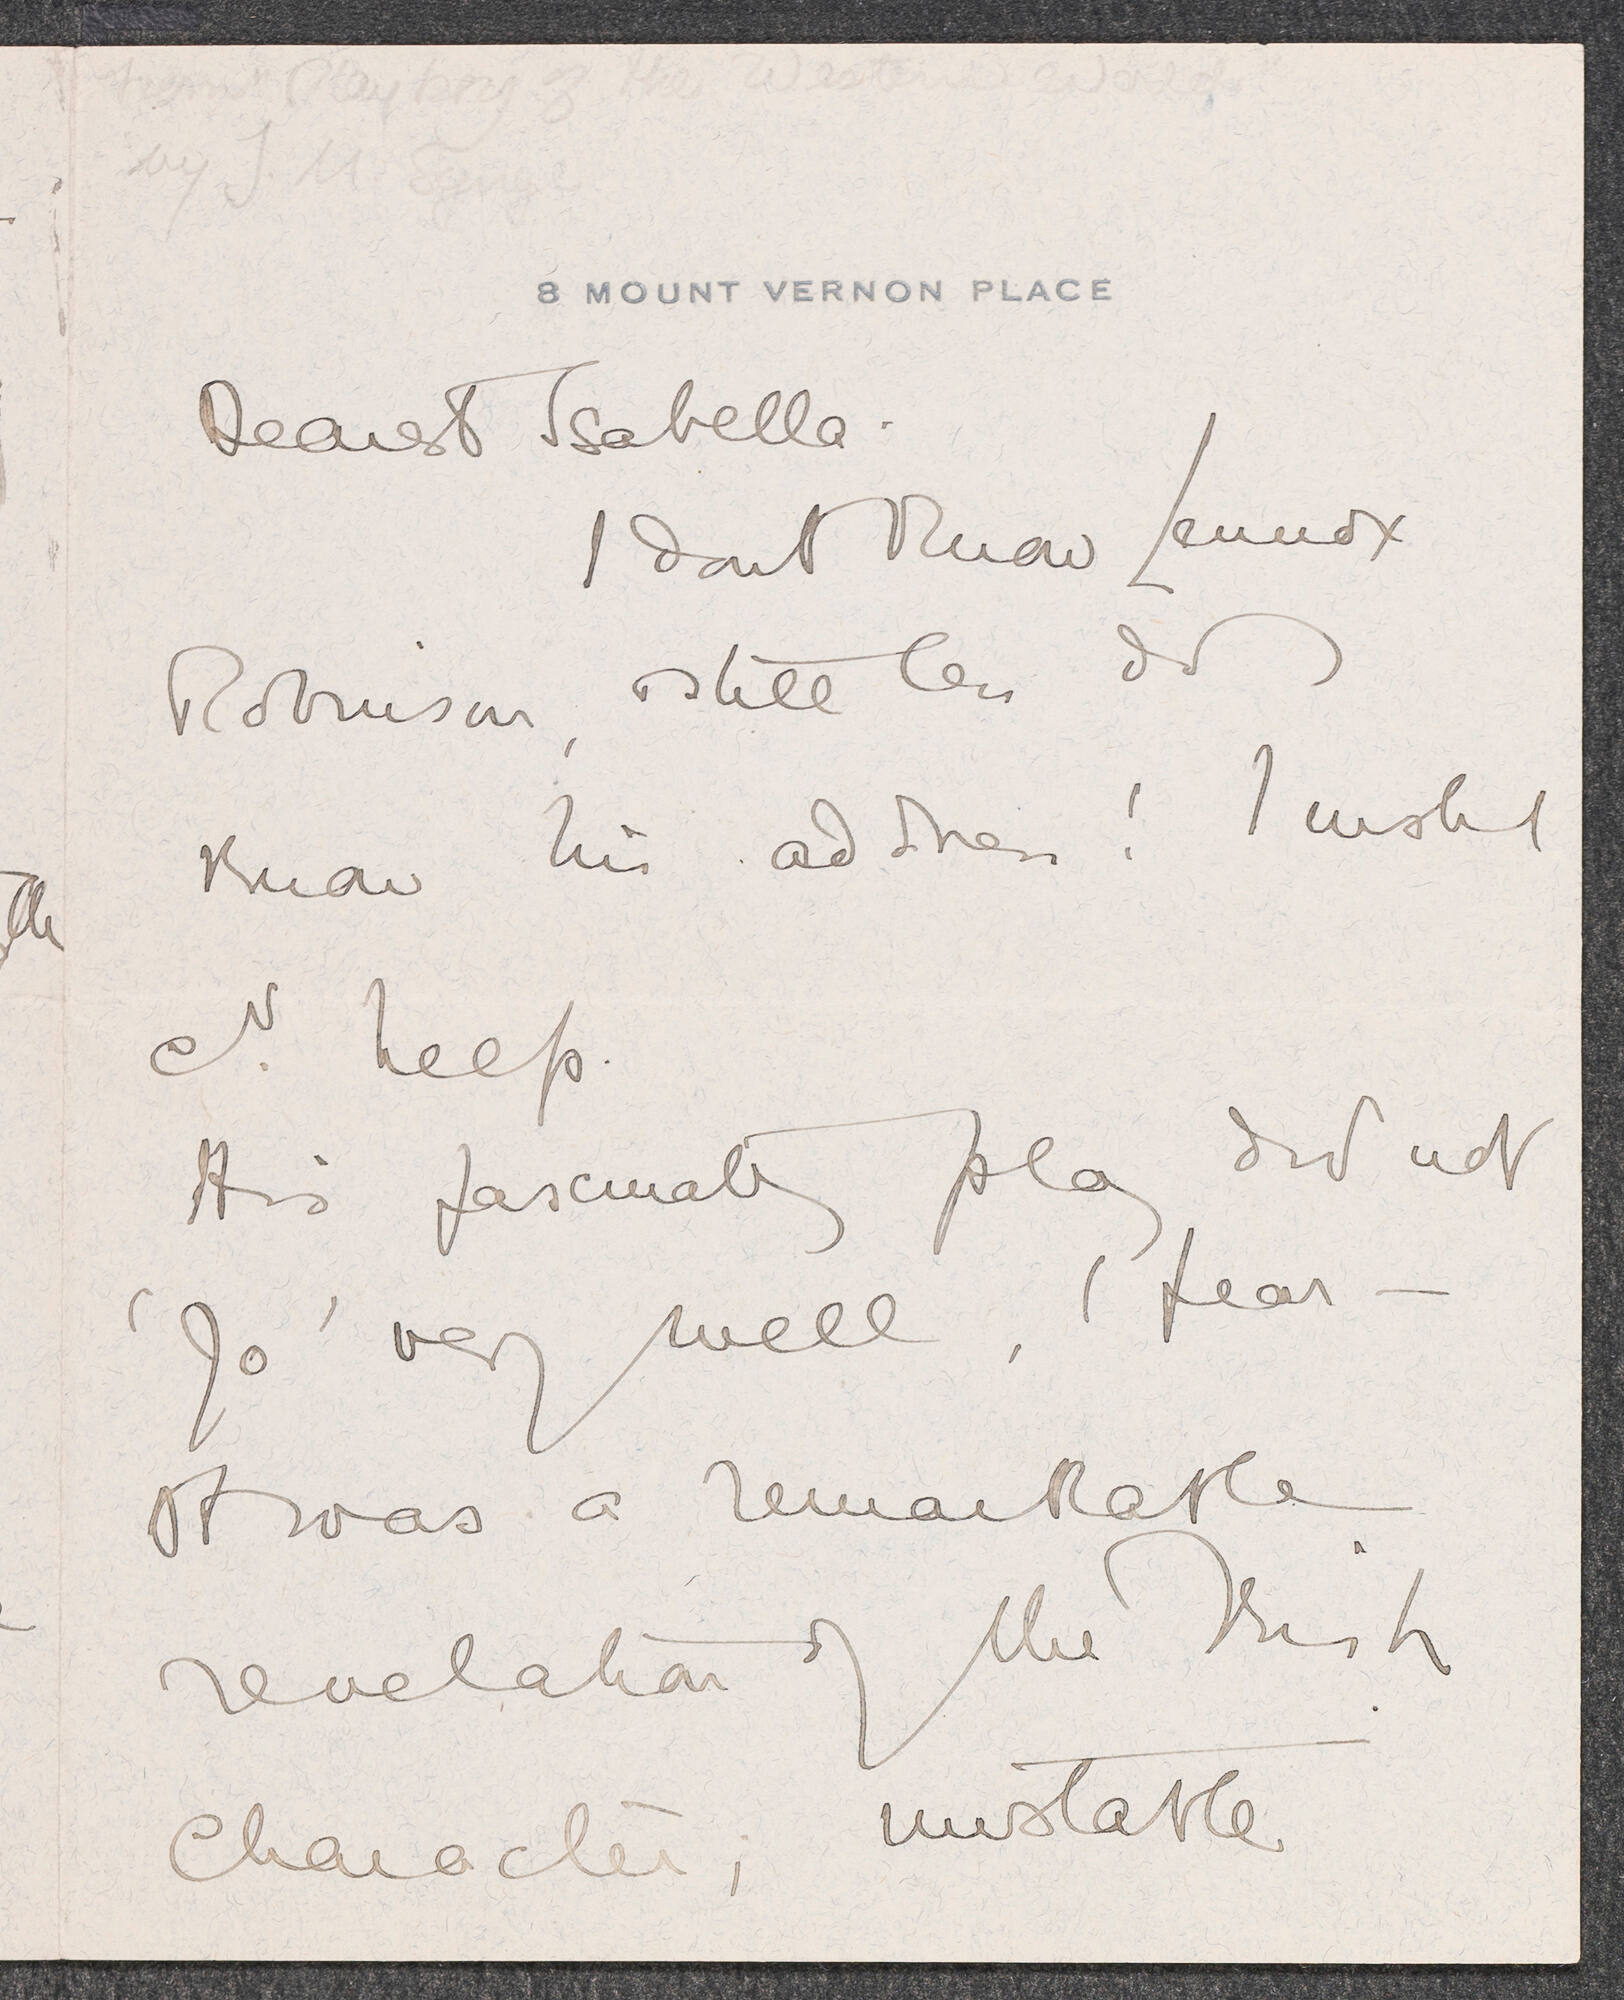 from "Playboy of the Western World"
by J. M. Synge
8 MOUNT VERNON PLACE
Dearest Isabella.
I dont know Lennox
Robinson, still less do I
know his address! I wish I
cd. help.
His fascinating play did not
'go' very well, I fear —
It was a remarkable
revelation of the Irish
character; unstable